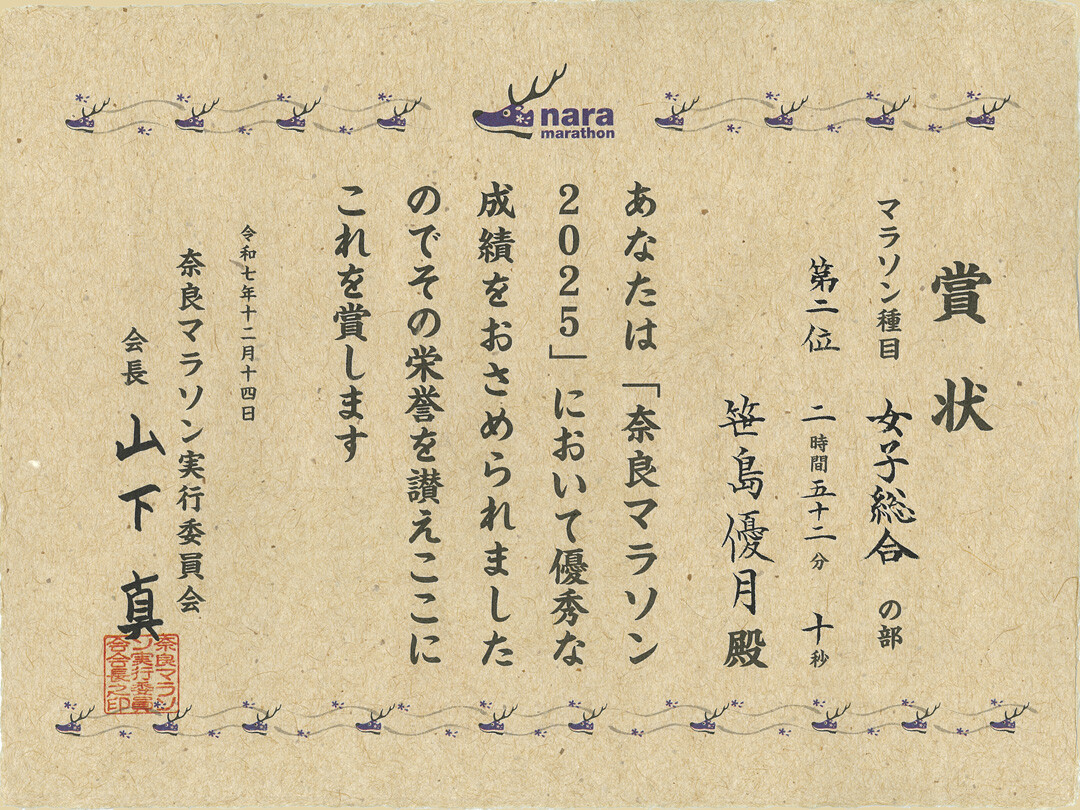 nara
marathon
賞状
マラソン種目 女子総合 の部
第二位 二時間五十二分 十秒
笹島優月殿
あなたは「奈良マラソン
2025」において優秀な
成績をおさめられました
のでその栄誉を讃えここに
これを賞します
令和七年十二月十四日
奈良マラソン実行委員会
会長 山下真
奈良マラソ
ン実行委員
会会長之印